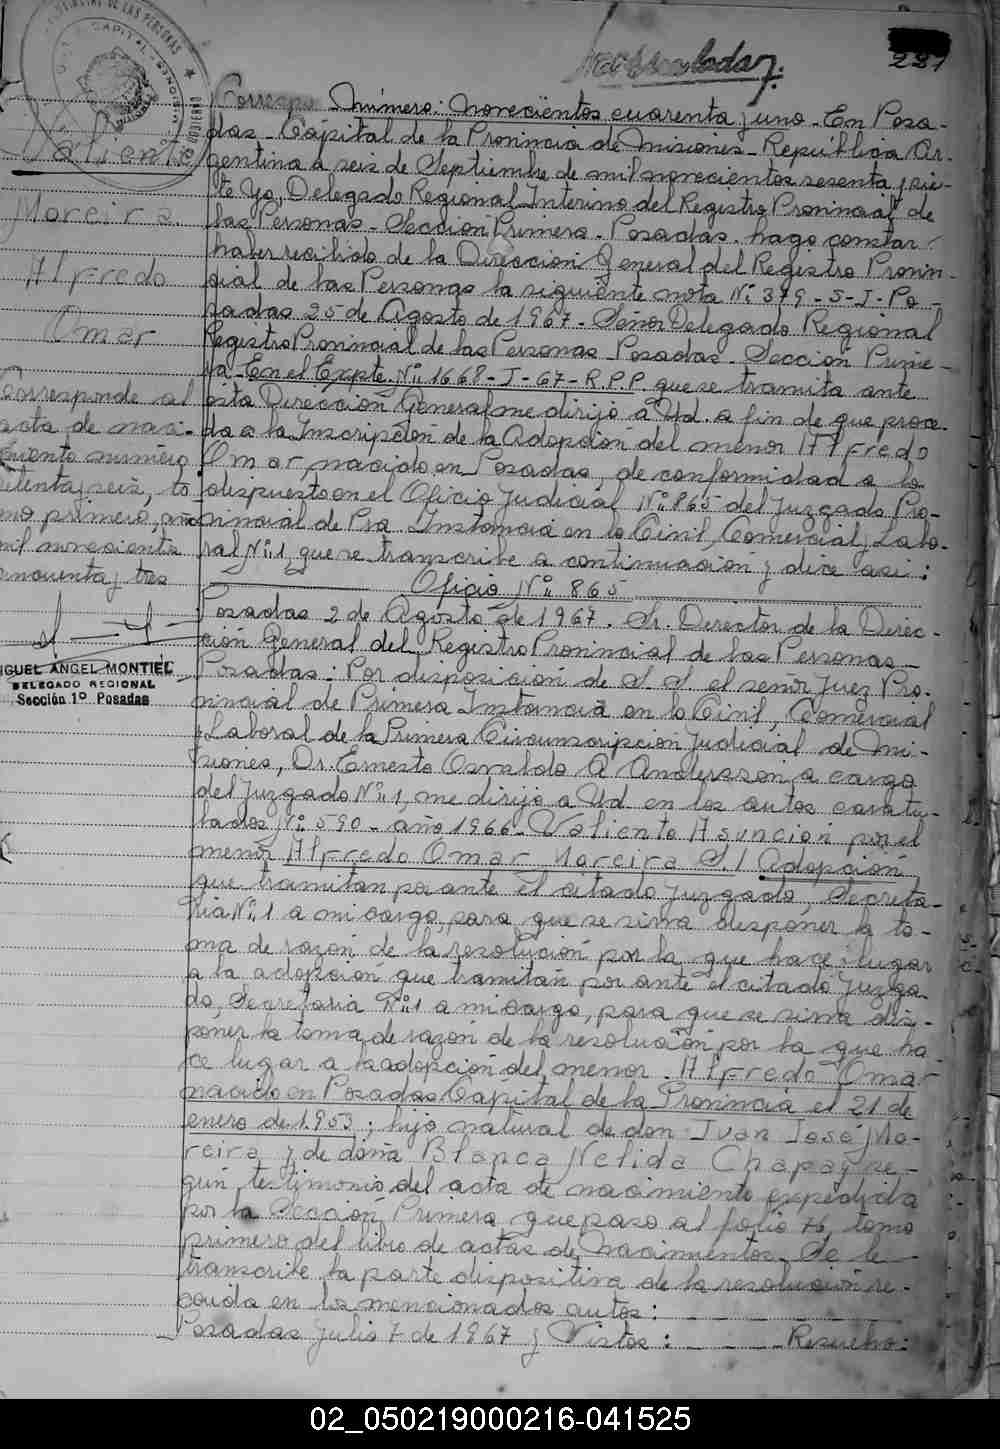 221
Número: novecientos cuarenta y uno - En Posa-
das - Capital de la Provincia de Misiones - República Ar-
gentina a seis de Septiembre de mil novecientos sesenta y sie-
te Yo, Delegado Regional Interino del Registro Provincial de
las Personas - Sección Primera - Posadas. hago constar
haber recibido de la Dirección General del Registro Provin-
cial de las Personas la siguiente nota Nº 379 - S - I - Po-
sadas 25 de Agosto de 1967 - Señor Delegado Regional
Registro Provincial de las Personas - Posadas - Sección Prime-
ra - En el Expte. Nº 1668 - J - 67 - R.P.P. que se tramita ante
esta Dirección General me dirijo a Ud. a fin de que proce-
da a la Inscripción de la Adopción del menor Alfredo
Omar, nacido en Posadas, de conformidad a lo
dispuesto en el Oficio Judicial Nº 865 del Juzgado Pro-
vincial de Pra. Instancia en lo Civil, Comercial y Labo-
ral Nº 1, que se transcribe a continuación y dice asi:
Oficio Nº 865
Posadas 2 de Agosto de 1967. Sr. Director de la Direc-
ción General del Registro Provincial de las Personas -
Posadas: Por disposición de S. S. el señor Juez Pro-
vincial de Primera Instancia en lo Civil, Comercial
y Laboral de la Primera Circunscripción Judicial de Mi-
siones, Dr. Ernesto Osvaldo A Andersson a cargo
del Juzgado Nº 1, me dirijo a Ud. en los autos caratu-
lados Nº 590 - año 1966 - Valiente Asunción por el
menor Alfredo Omar Moreira S/ Adopción,
que tramitan por ante el citado Juzgado, Secreta-
ria Nº 1 a mi cargo, para que se sirva disponer la to-
ma de razón de la resolución por la que hace lugar
a la adopción que tramitan por ante el citado Juzga-
do, Secretaria Nº 1 a mi cargo, para que se sirva dis-
poner la toma de razón de la resolución por la que ha-
ce lugar a la adopción del menor Alfredo Omar
nacido en Posadas Capital de la Provincia el 21 de
enero de 1953; hijo natural de don Juan José Mo-
reira y de doña Blanca Nelida Chapay se-
gún testimonio del acta de nacimiento expedida
por la Sección Primera que paso al folio 76, tomo
primero del libro de actas de Nacimientos. Se le
transcribe la parte dispositiva de la resolución re-
caida en los mencionados autos:
Posadas Julio 7 de 1967 y Vistos: Resuelvo:
Valiente
Moreira
Alfredo
Omar
Corresponde al
acta de naci-
miento número
setenta y seis, to
mo primero, año
mil novecientos
cincuenta y tres
MIGUEL ANGEL MONTIEL
DELEGADO REGIONAL
Sección 1º Posadas
02_050219000216-041525